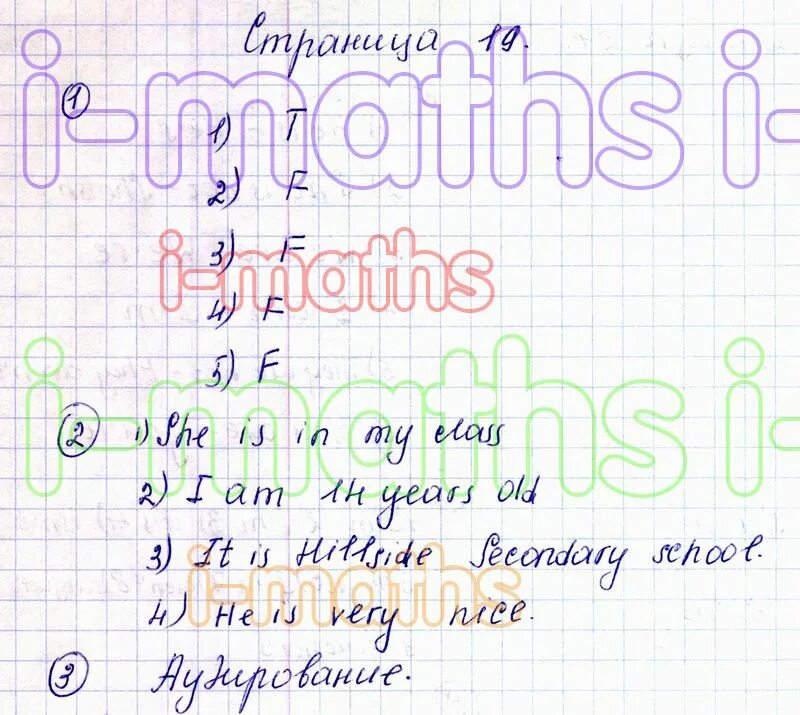 Страница 19.
i-maths i-maths
1
1) T
2) F
3) F
i-maths
4) F
5) F
i-maths i-maths
2 1) She is in my class
2) I am 14 years old
3) It is Hillside Secondary school.
i-maths
4) He is very nice.
3 Аудирование.